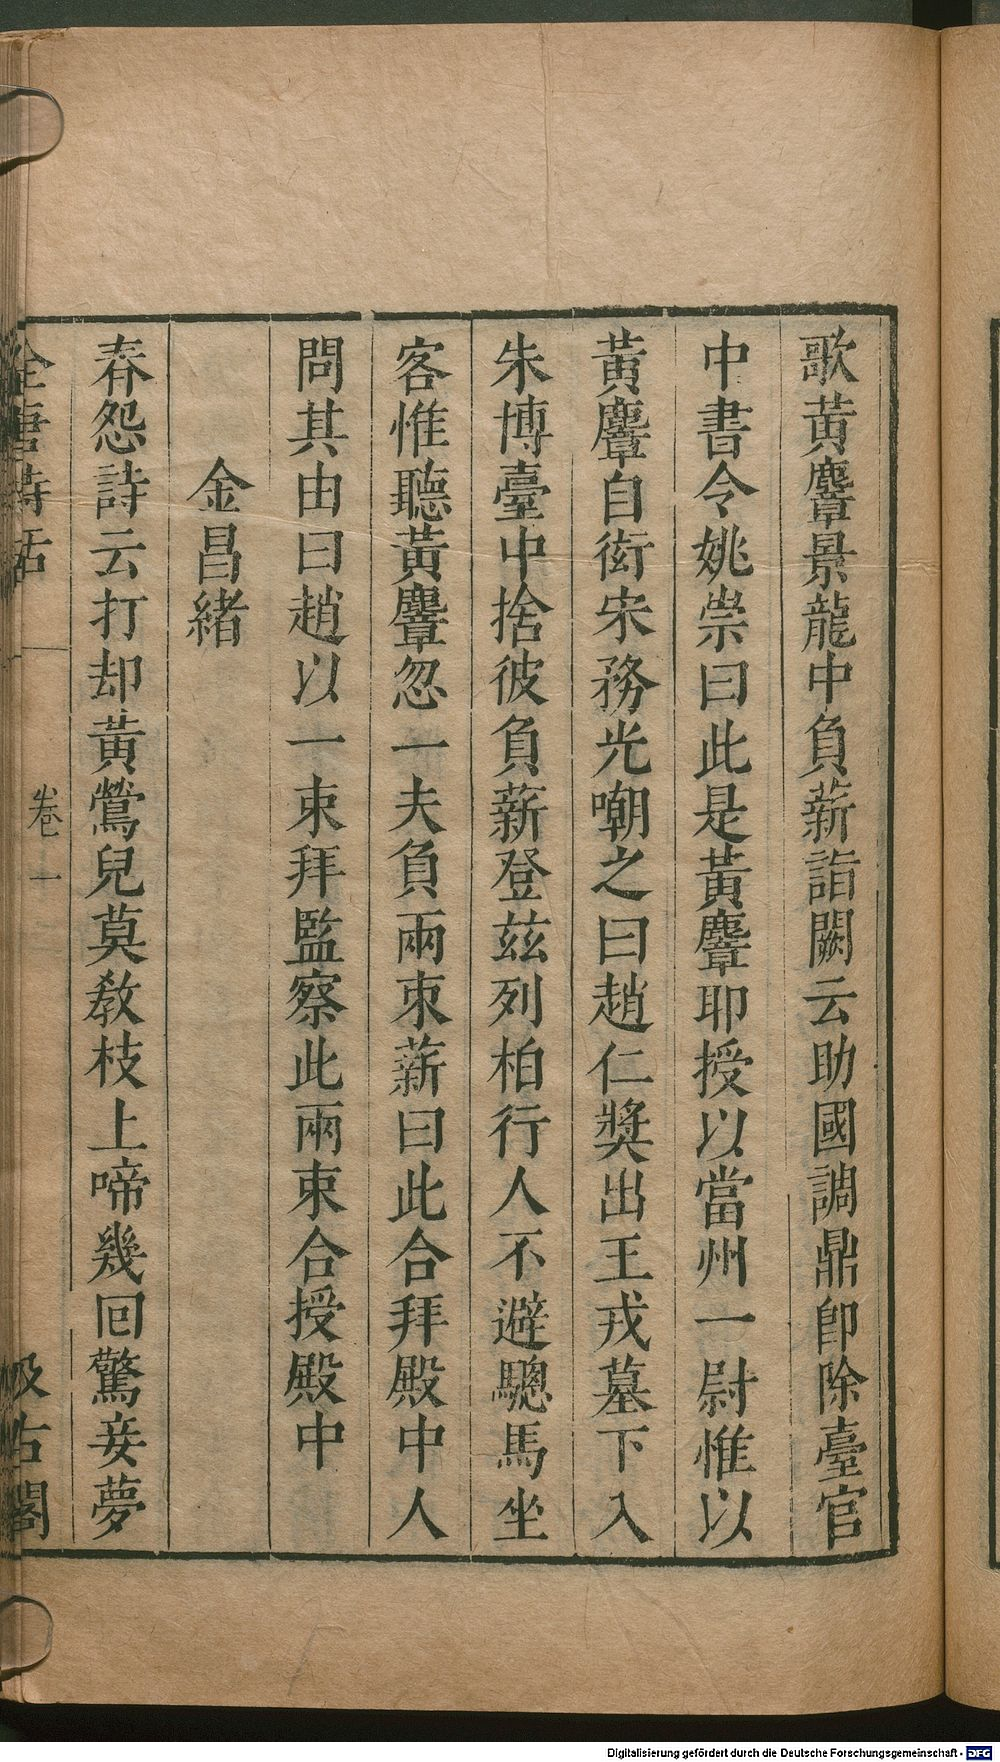 歌黄麞景龍中負薪詣闕云助國調鼎卽除臺官
中書令姚崇曰此是黃麞耶授以當州一尉惟以
黃麞自衒宋務光嘲之曰趙仁奬出王戎墓下入
朱博臺中捨彼負薪登兹列柏行人不避驄馬坐
客惟聽黃麞忽一夫負兩束薪曰此合拜殿中人
問其由曰趙以一束拜監察此兩束合授殿中
金昌緒
春怨詩云打却黃鶯兒莫敎枝上啼幾回驚妾夢
全唐詩話 卷一 汲古閣
Digitalisierung gefördert durch die Deutsche Forschungsgemeinschaft - DFG